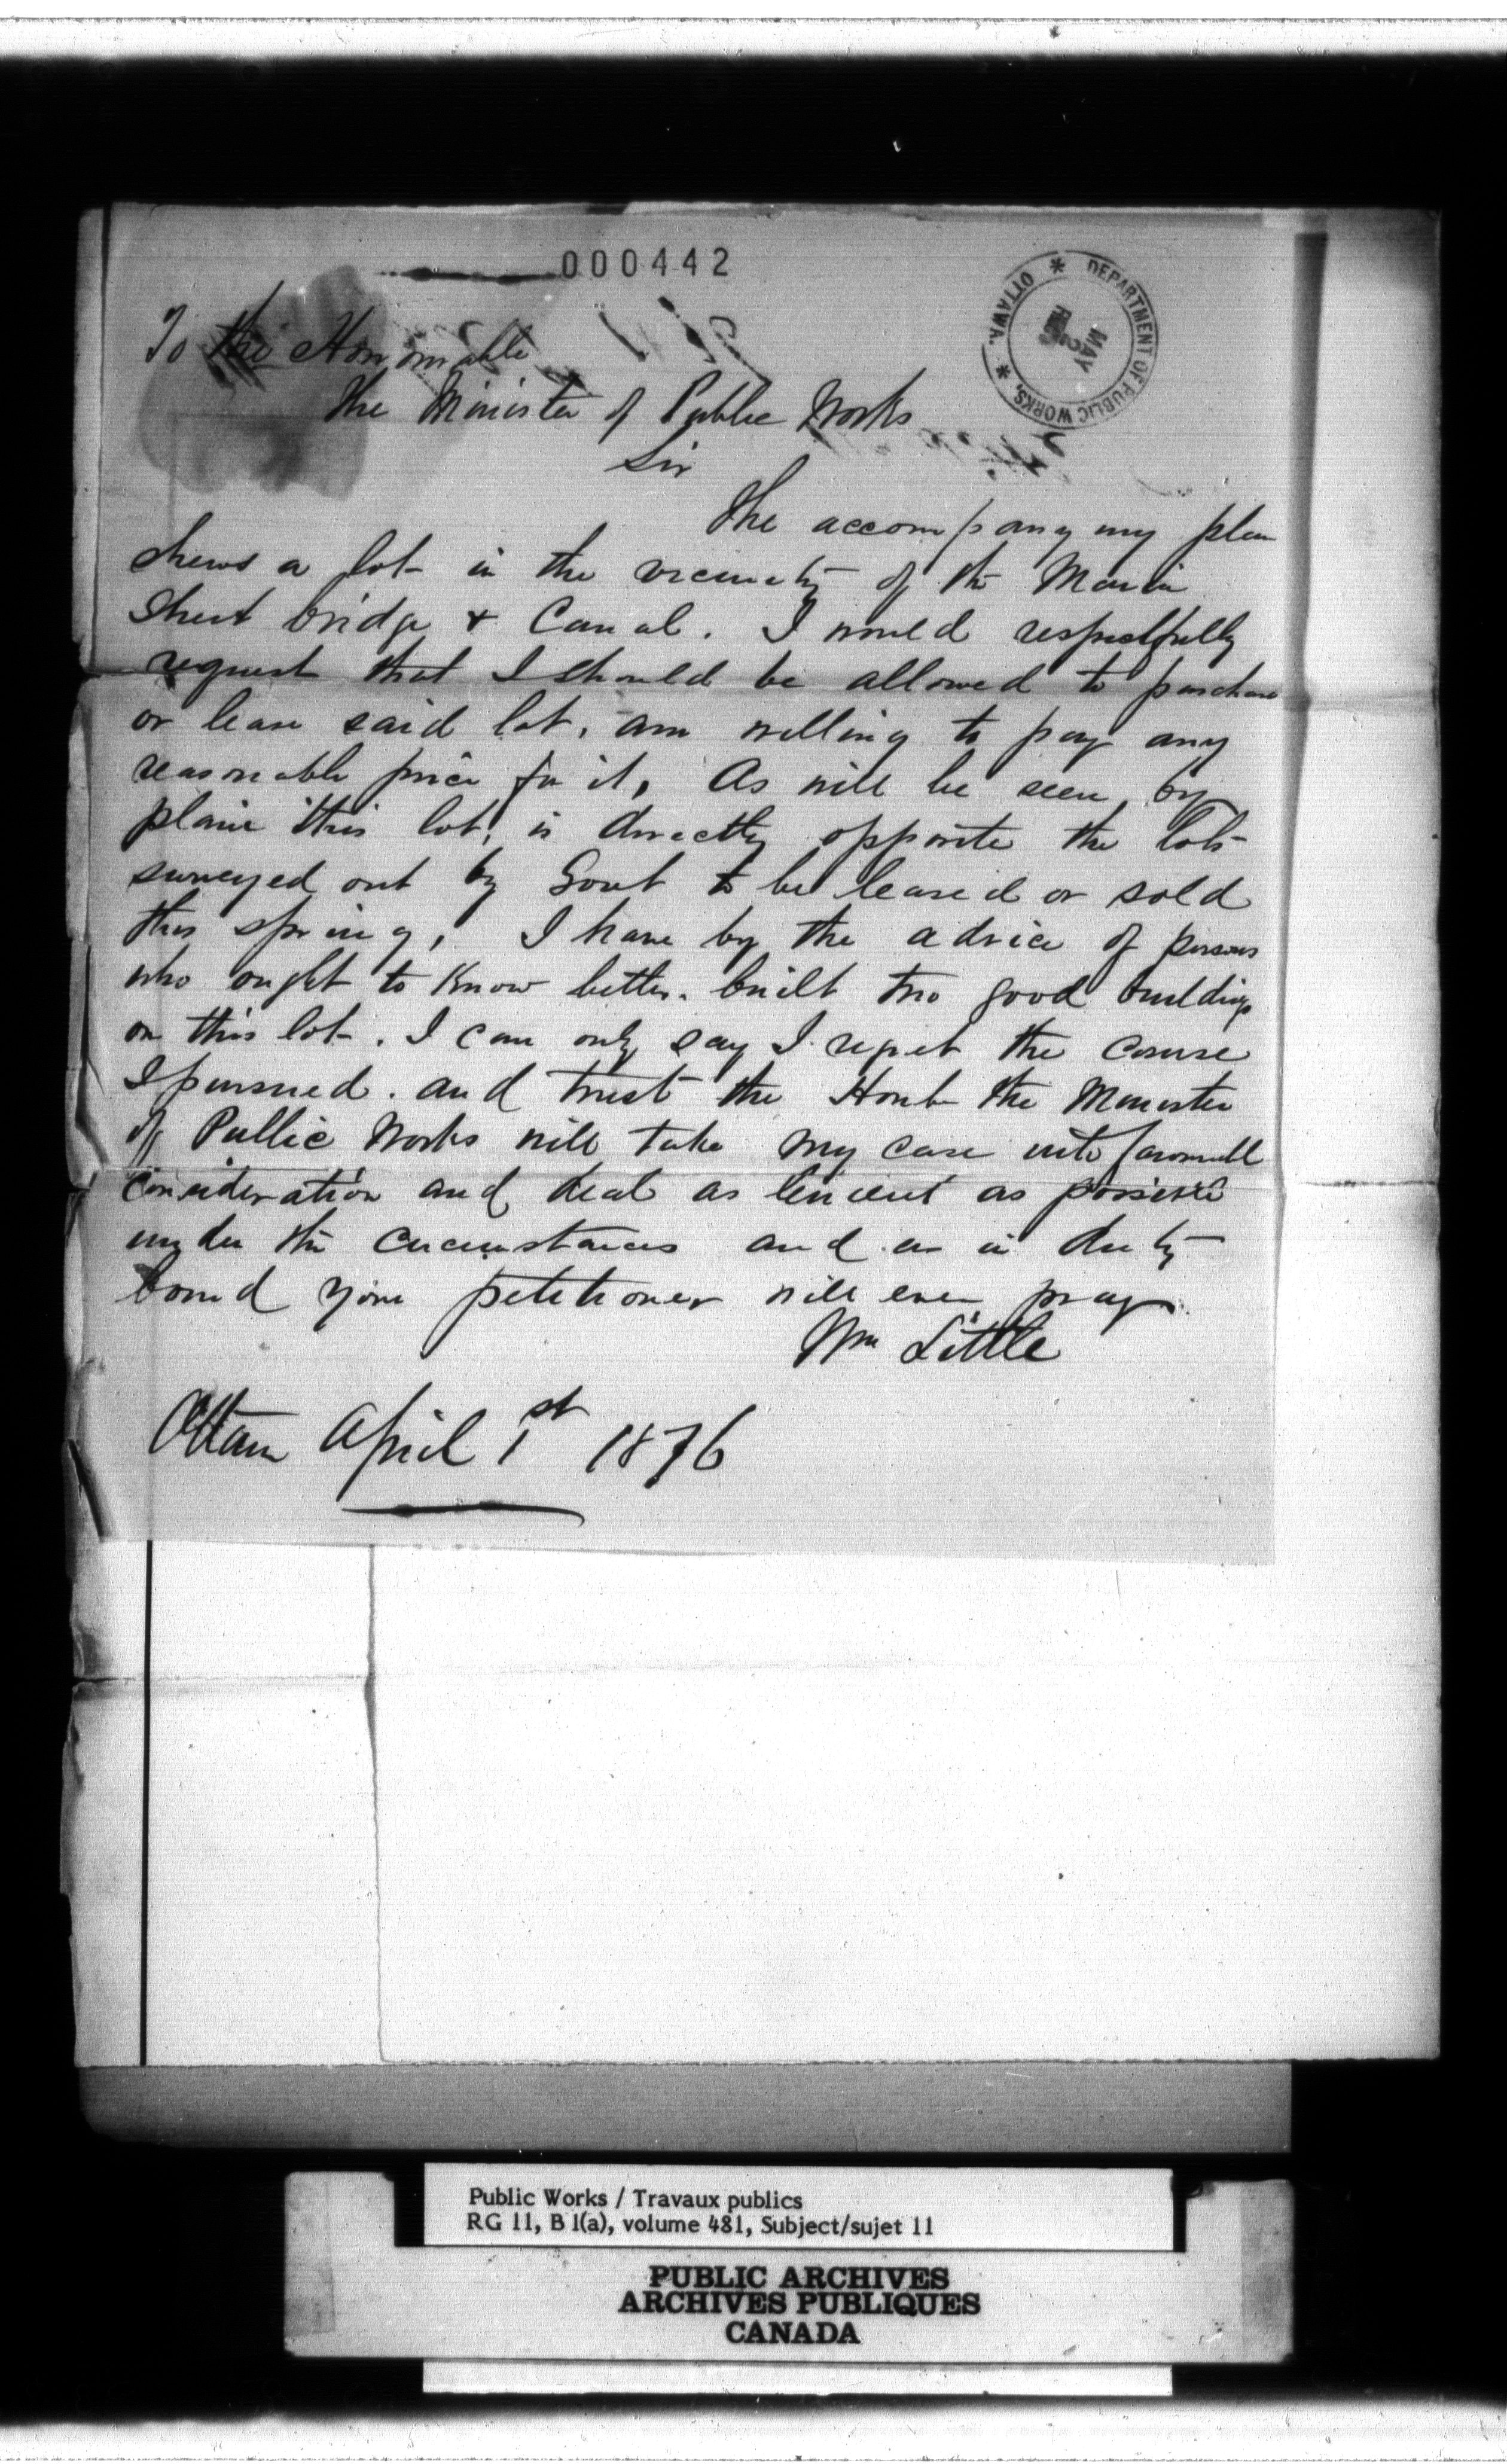 000442
DEPARTMENT OF PUBLIC WORKS, * OTTAWA. *
MAY
To the Honourable
The Minister of Public Works
Sir
The accompanying plan
shews a lot in the vicinity of the Maria
Street bridge & Canal. I would respectfully
request that I should be allowed to purchase
or lease said lot, am willing to pay any
reasonable price for it, As will be seen by
plain this lot, is directly opposite the lots
surveyed out by Govt to be leased or sold
this spring, I have by the advice of persons
who ought to know better. built two good buildings
on this lot. I can only say I regret the course
I pursued. and trust the Honbl the Minister
of Public Works will take my case into favourable
consideration and deal as lenient as possible
under the circumstances and as in duty
bound your petitioner will ever pray.
Wm Little
Ottawa April 1st 1876
Public Works / Travaux publics
RG 11, B 1(a), volume 481, Subject/sujet 11
PUBLIC ARCHIVES
ARCHIVES PUBLIQUES
CANADA